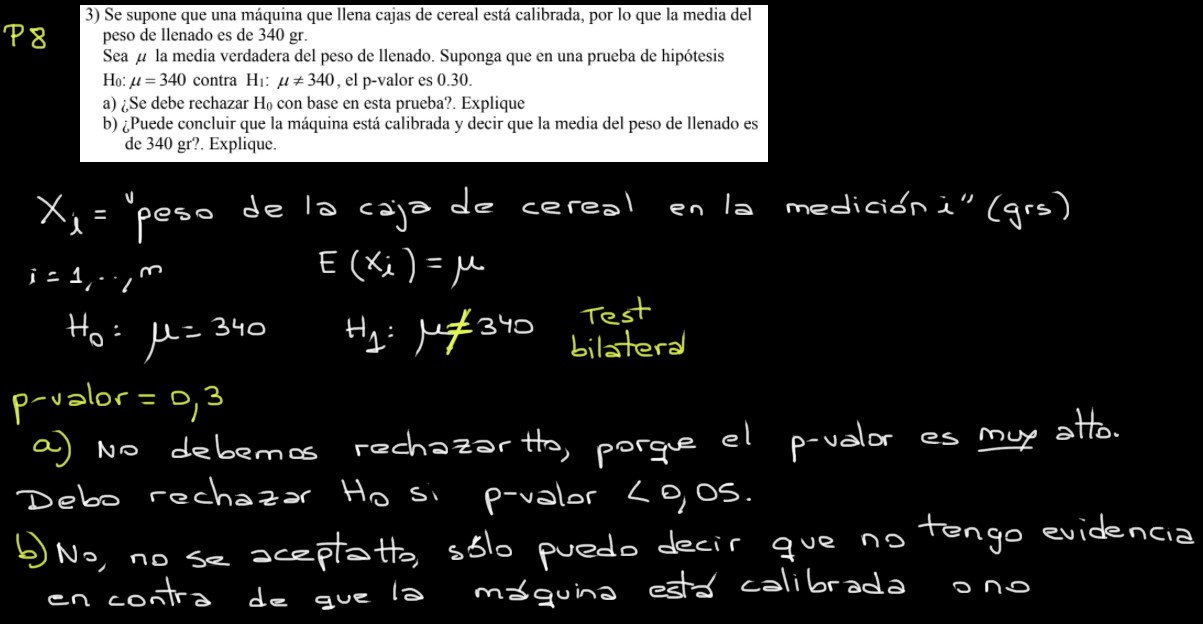 P8
3) Se supone que una máquina que llena cajas de cereal está calibrada, por lo que la media del
peso de llenado es de 340 gr.
Sea μ la media verdadera del peso de llenado. Suponga que en una prueba de hipótesis
H₀: μ = 340 contra H₁: μ ≠ 340, el p-valor es 0.30.
a) ¿Se debe rechazar H₀ con base en esta prueba?. Explique
b) ¿Puede concluir que la máquina está calibrada y decir que la media del peso de llenado es
de 340 gr?. Explique.
Xᵢ = "peso de la caja de cereal en la medición i" (grs)
i = 1, .., n E (Xᵢ) = μ
H₀: μ = 340 H₁: μ ≠ 340 Test
bilateral
p-valor = 0,3
a) No debemos rechazar H₀, porque el p-valor es muy alto.
Debo rechazar H₀ si p-valor < 0,05.
b) No, no se acepta H₀, sólo puedo decir que no tengo evidencia
en contra de que la máquina está calibrada o no